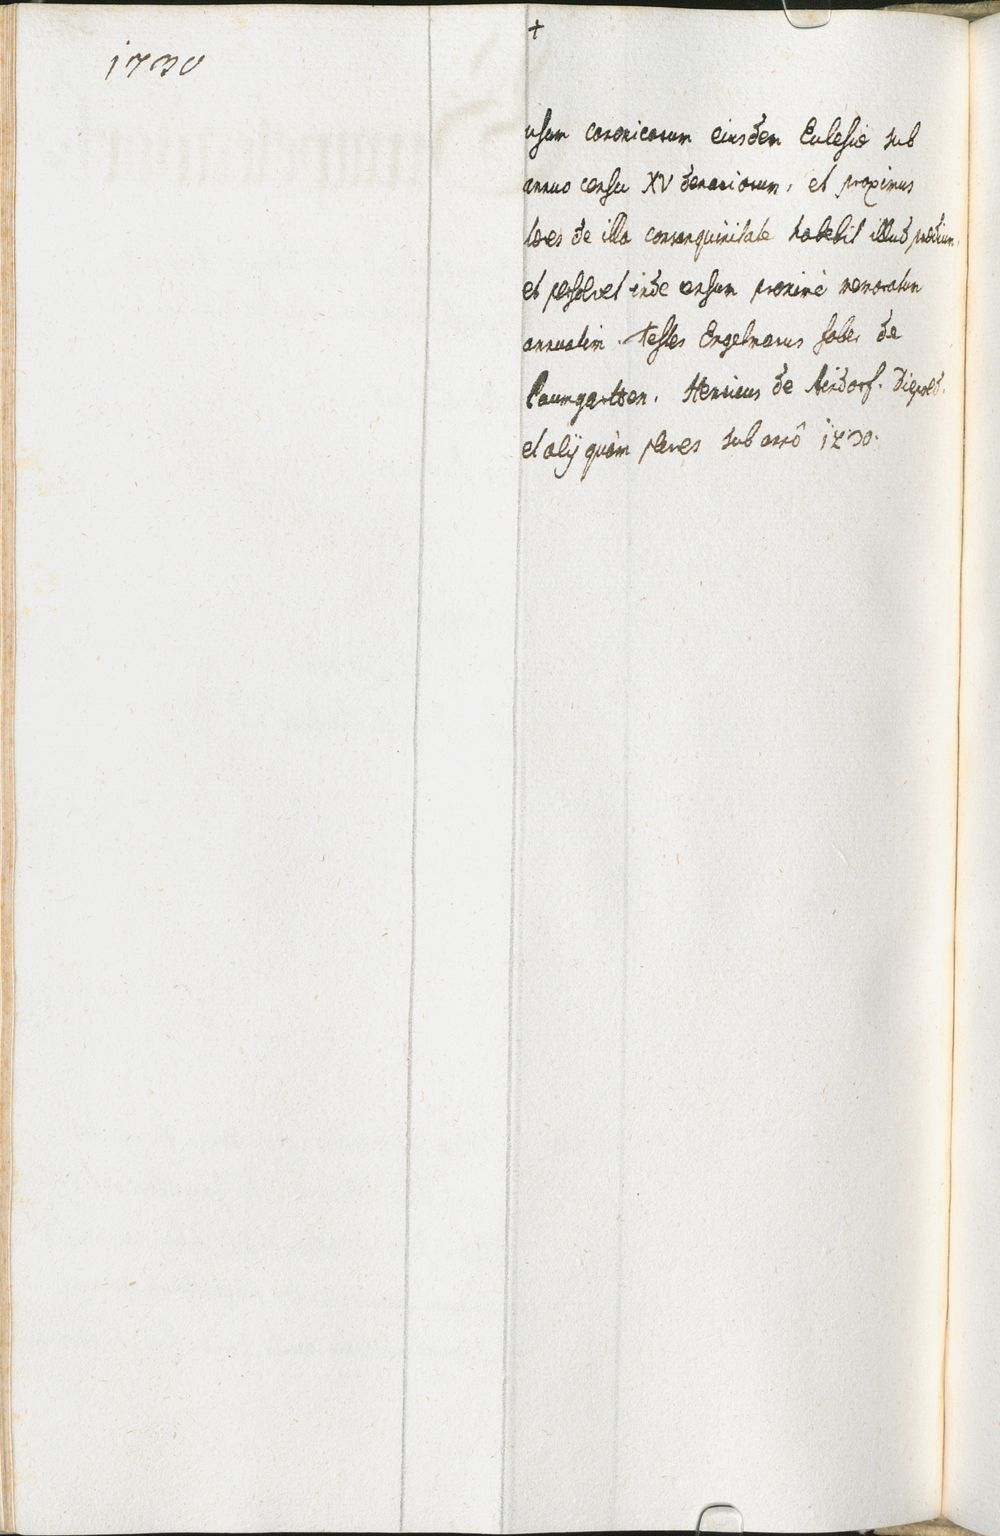 1730
+
usum canonicorum eiusdem Eclesiæ sub
annuo censu XV denariorum, et proximus
hæres de illa consanguinitate habebit illud prædium,
et persolvet inde censum proximè memoratum
annuatim. Testes Engelmarus faber de
Paumgartten. Henricus de Aindorf. Diepold.
et alij quàm plures sub annô 1730.